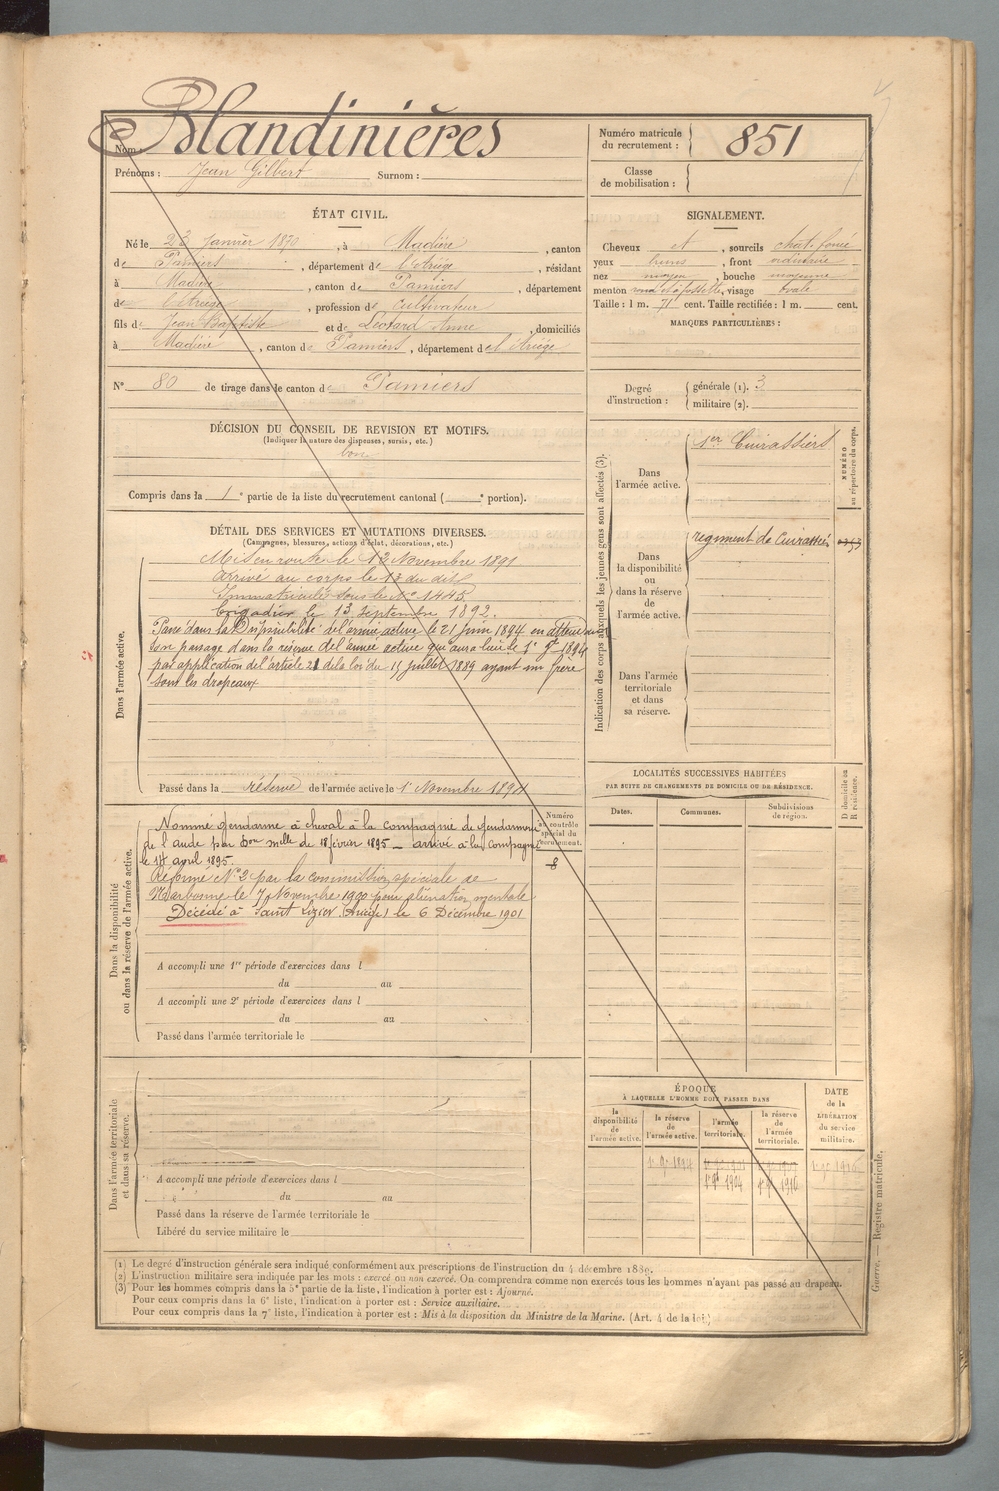 Nom : Blandinières
Prénoms : Jean Gilbert Surnom :
Numéro matricule du recrutement : 851
Classe de mobilisation :
ÉTAT CIVIL.
Né le 23 Janvier 1870, à Madière, canton
de Pamiers, département de l'Ariège, résidant
à Madière, canton de Pamiers, département
de l'Ariège, profession de cultivateur
fils de Jean Baptiste et de Léotard Anne, domiciliés
à Madière, canton de Pamiers, département de l'Ariège
N° 80 de tirage dans le canton de Pamiers
SIGNALEMENT.
Cheveux et, sourcils chât. foncé
yeux, front ordinaire
nez moyen, bouche moyenne
menton rond et à fossette, visage ovale
Taille : 1 m. 71 cent. Taille rectifiée : 1 m. cent.
MARQUES PARTICULIÈRES :
Degré d'instruction : générale (1). 3
militaire (2).
DÉCISION DU CONSEIL DE REVISION ET MOTIFS.
(Indiquer la nature des dispenses, sursis, etc.)
bon
Compris dans la 1e partie de la liste du recrutement cantonal ( e portion).
DÉTAIL DES SERVICES ET MUTATIONS DIVERSES.
(Campagnes, blessures, actions d'éclat, décorations, etc.)
Dans l'armée active.
Mis en route le 12 Novembre 1891
arrivé au corps le 13 du dit
Immatriculé sous le N° 1445
Brigadier le 13 Septembre 1892.
Passé dans la Disponibilité de l'armée active le 21 Juin 1894 en attendant
son passage dans la réserve de l'armée active qui aura lieu le 1er 9bre 1894
par application de l'article 21 de la loi du 15 juillet 1889 ayant un frère
sous les drapeaux
Passé dans la réserve de l'armée active le 1er Novembre 1894
Indication des corps auxquels les jeunes gens sont affectés (3).
NUMÉRO au répertoire du corps.
Dans l'armée active. 1er Cuirassiers
Dans la disponibilité ou dans la réserve de l'armée active. regiment de Cuirassiers
Dans l'armée territoriale et dans sa réserve.
LOCALITÉS SUCCESSIVES HABITÉES
PAR SUITE DE CHANGEMENTS DE DOMICILE OU DE RÉSIDENCE.
Dates. Communes. Subdivisions de région. D domicile ou R résidence.
Dans la disponibilité ou dans la réserve de l'armée active.
Numéro au contrôle spécial du recrutement.
Nommé gendarme à cheval à la compagnie de gendarmerie
de l'aude par Don melle du 18 février 1895 _ arrivé à la compagnie
le 14 avril 1895.
Réformé N° 2 par la commission spéciale de
Narbonne le 7 Novembre 1900 pour aliénation mentale
Décédé à Saint Lizier (Ariège) le 6 Décembre 1901
A accompli une 1re période d'exercices dans l
du au
A accompli une 2e période d'exercices dans l
du au
Passé dans l'armée territoriale le
Dans l'armée territoriale et dans sa réserve.
A accompli une période d'exercices dans l
du au
Passé dans la réserve de l'armée territoriale le
Libéré du service militaire le
ÉPOQUE
À LAQUELLE L'HOMME DOIT PASSER DANS
la disponibilité de l'armée active. la réserve de l'armée active. l'armée territoriale. la réserve de l'armée territoriale.
DATE de la LIBÉRATION du service militaire.
1er 9e 1894
1er 9e 1904 1er 9e 1916
(1) Le degré d'instruction générale sera indiqué conformément aux prescriptions de l'instruction du 4 décembre 1889.
(2) L'instruction militaire sera indiquée par les mots : exercé ou non exercé. On comprendra comme non exercés tous les hommes n'ayant pas passé au drapeau.
(3) Pour les hommes compris dans la 5e partie de la liste, l'indication à porter est : Ajourné.
Pour ceux compris dans la 6e liste, l'indication à porter est : Service auxiliaire.
Pour ceux compris dans la 7e liste, l'indication à porter est : Mis à la disposition du Ministre de la Marine. (Art. 4 de la loi.)
Guerre. — Registre matricule.